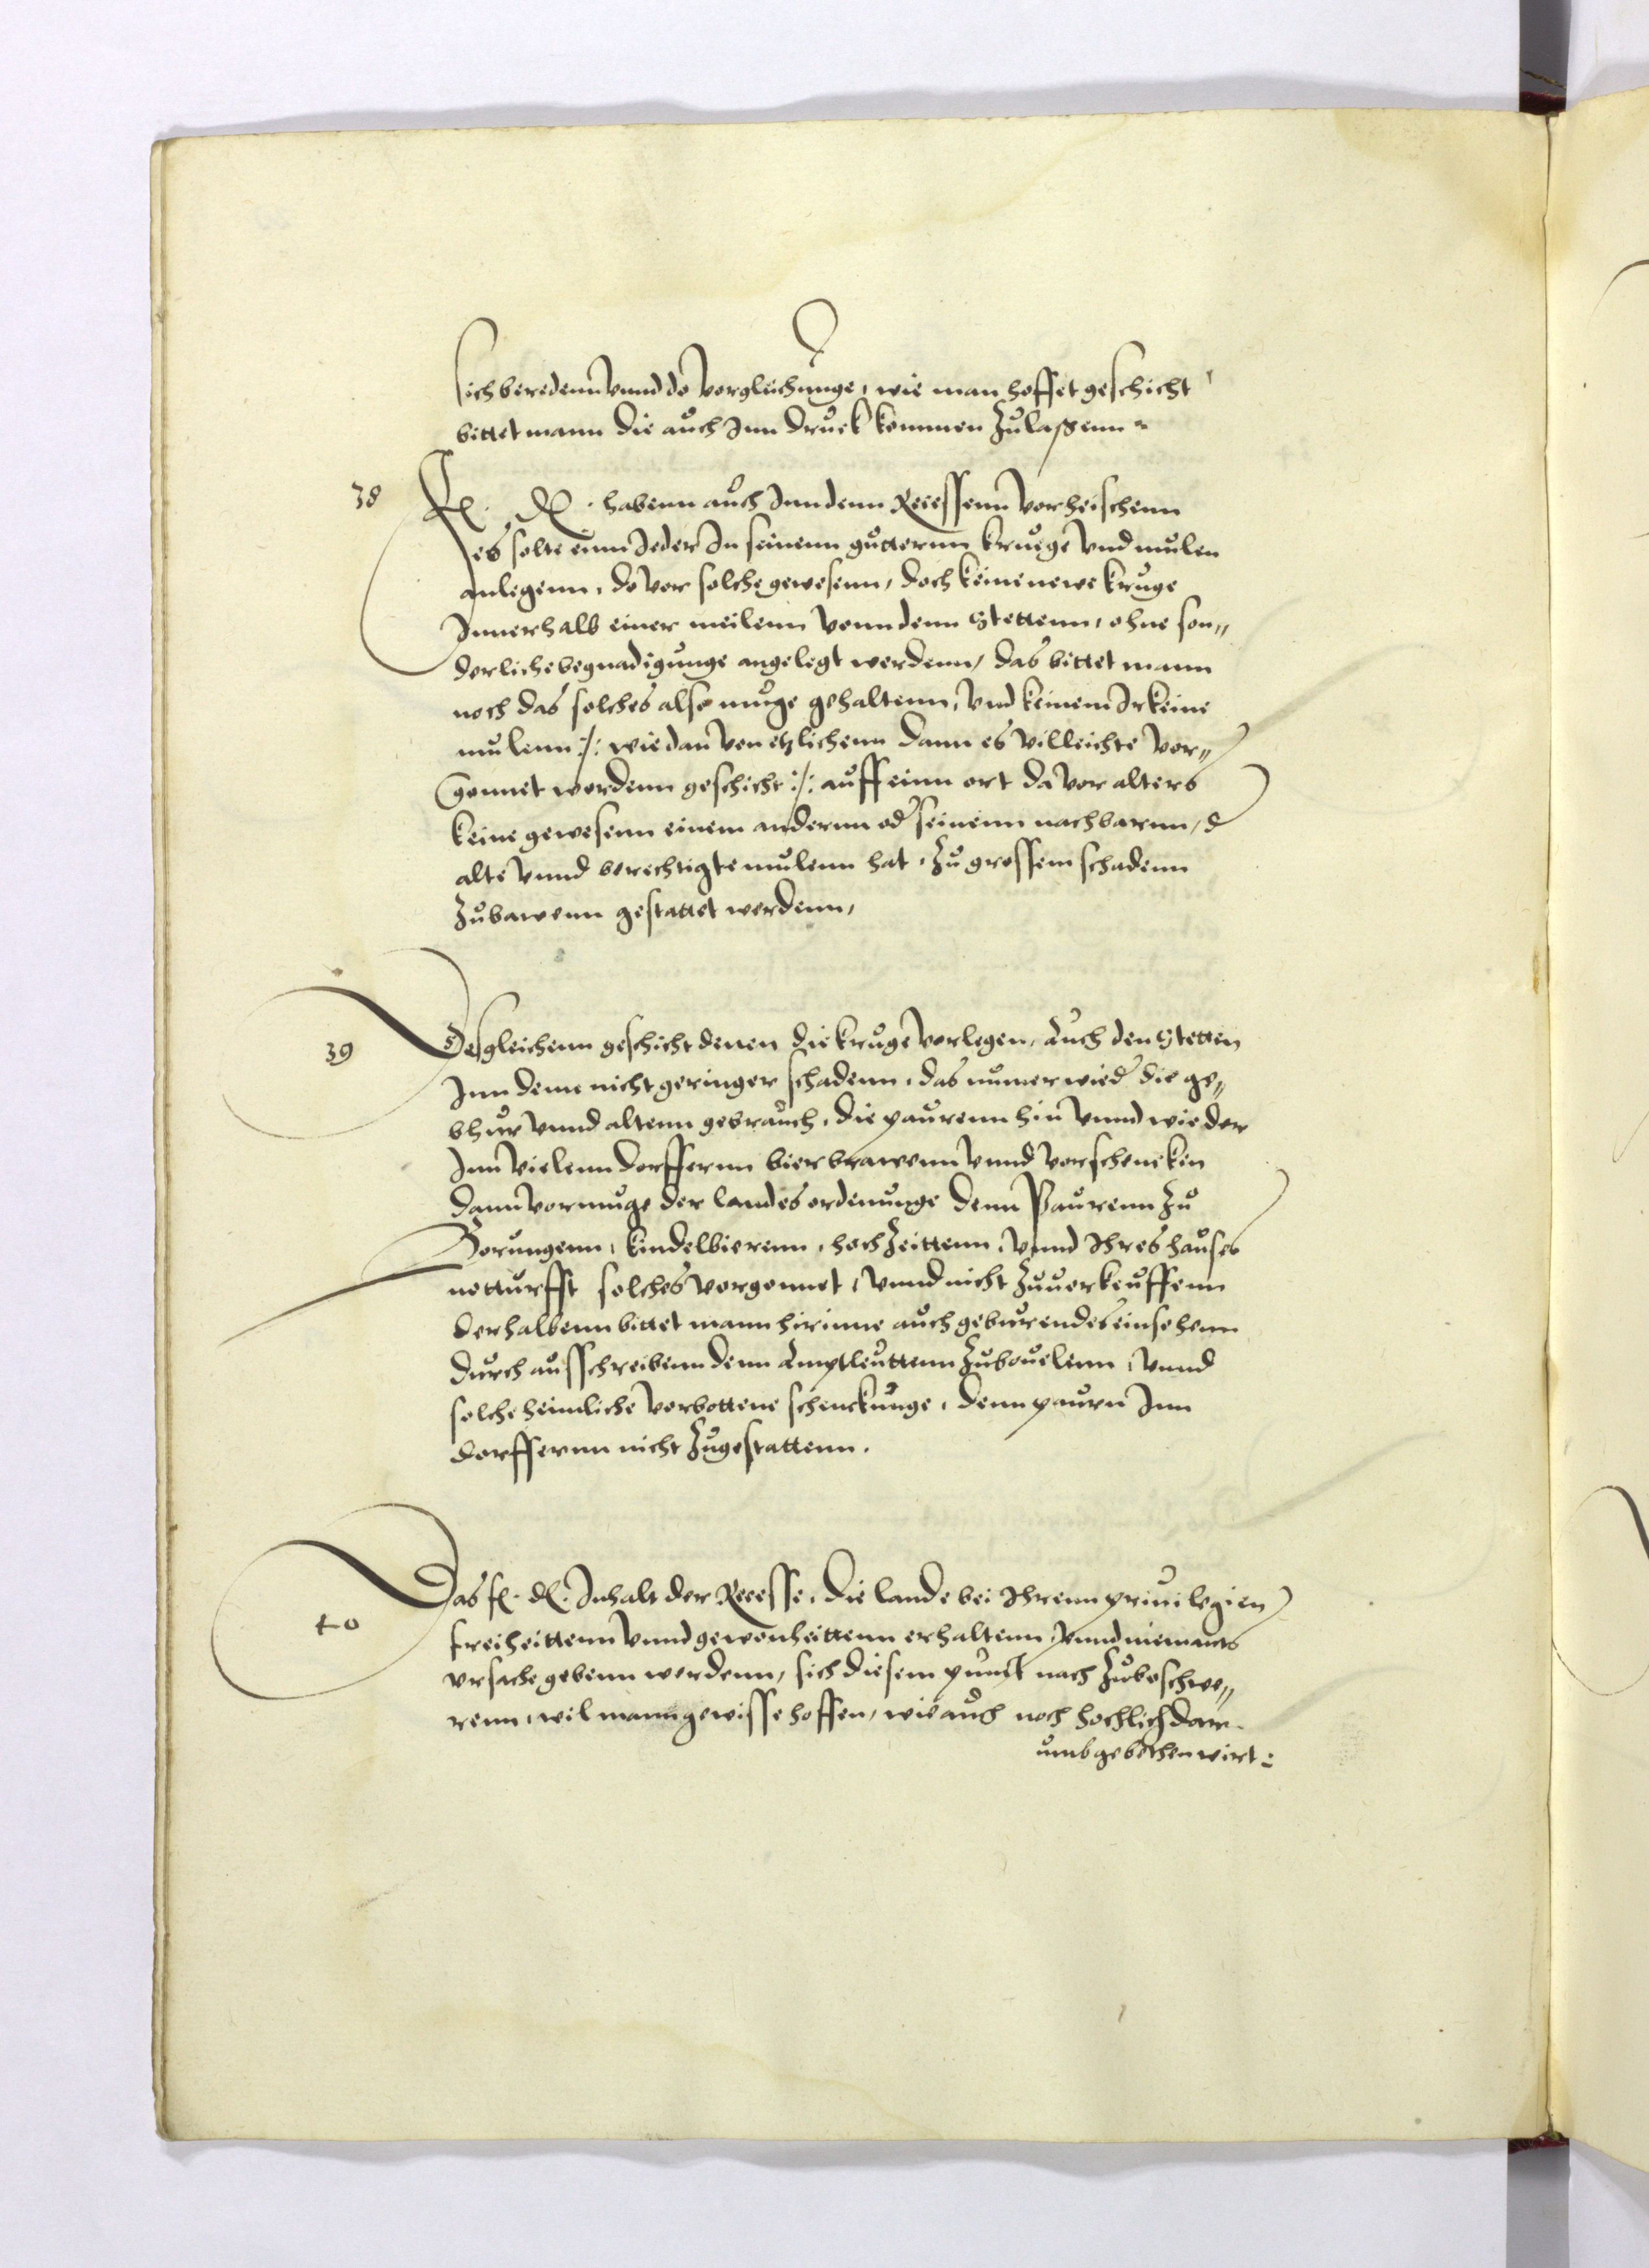 sich beredenn vnnd do vorgleichunge, wie man hoffet geschicht
bittet mann die auch Inn druck kommen zulaßenn
38
F. D. habenn auch Inn denn Recessenn vorheischenn
es solte einn Jeder In seinenn gutternn kruege vnd mulen
anlegenn, do vor solche gewesenn, doch keine newe kruge
Innerhalb einer meilenn vonn denn Stettenn, ohne son„
derliche begnadigunge angelegt werdenn, das bittet mann
noch das solches also muge gehaltenn, vnd keinem Irkeine
mulenn :/: wie dan von etzlichenn dann es villeichte vor„
gonnet wordenn geschicht :/: auff einn ort da vor alters
keine gewesenn einem andernn od seinenn nachbarnn, d
alte vnnd berechtigte mulenn hat, zu grossem schadenn
zubawenn gestattet werdenn,
39
Desgleichenn geschicht denen die kruge vorlegen, Auch den Stetten
Inn deme nicht geringer schadenn, das numer wied die ge„
bhur vnnd altenn gebrauch, die paurenn hin vnnd wieder
Inn vielenn dorffernn bier brawenn vnnd vorschencken
dann vormuge der landes ordenunge denn Paurenn zu
kindelbierenn, hochzeittenn, vnnd Ihres hauses
notturfft solches vorgonnet, vnnd nicht zuuorkeuffenn
derhalbenn bittet mann hirinne auch geburendes einsehenn
durch ausschreibenn denn Amptleuttenn zubouelenn, vnnd
solche heimliche vorbottene schenckunge, denn paurn Inn
dorffernn nicht zugestattenn.
40
Das f. d. Inhalt der Recesse, die lande bei Ihrenn priuilegien
freiheittenn vnnd gewonheittenn erhaltenn, vnnd niemants
vrsache gebenn werdenn, sich diesem punct nach zubeschwe„
renn, wil mann gewisse hoffen, wie auch noch hochlich dar„
umb gebethen wirt: